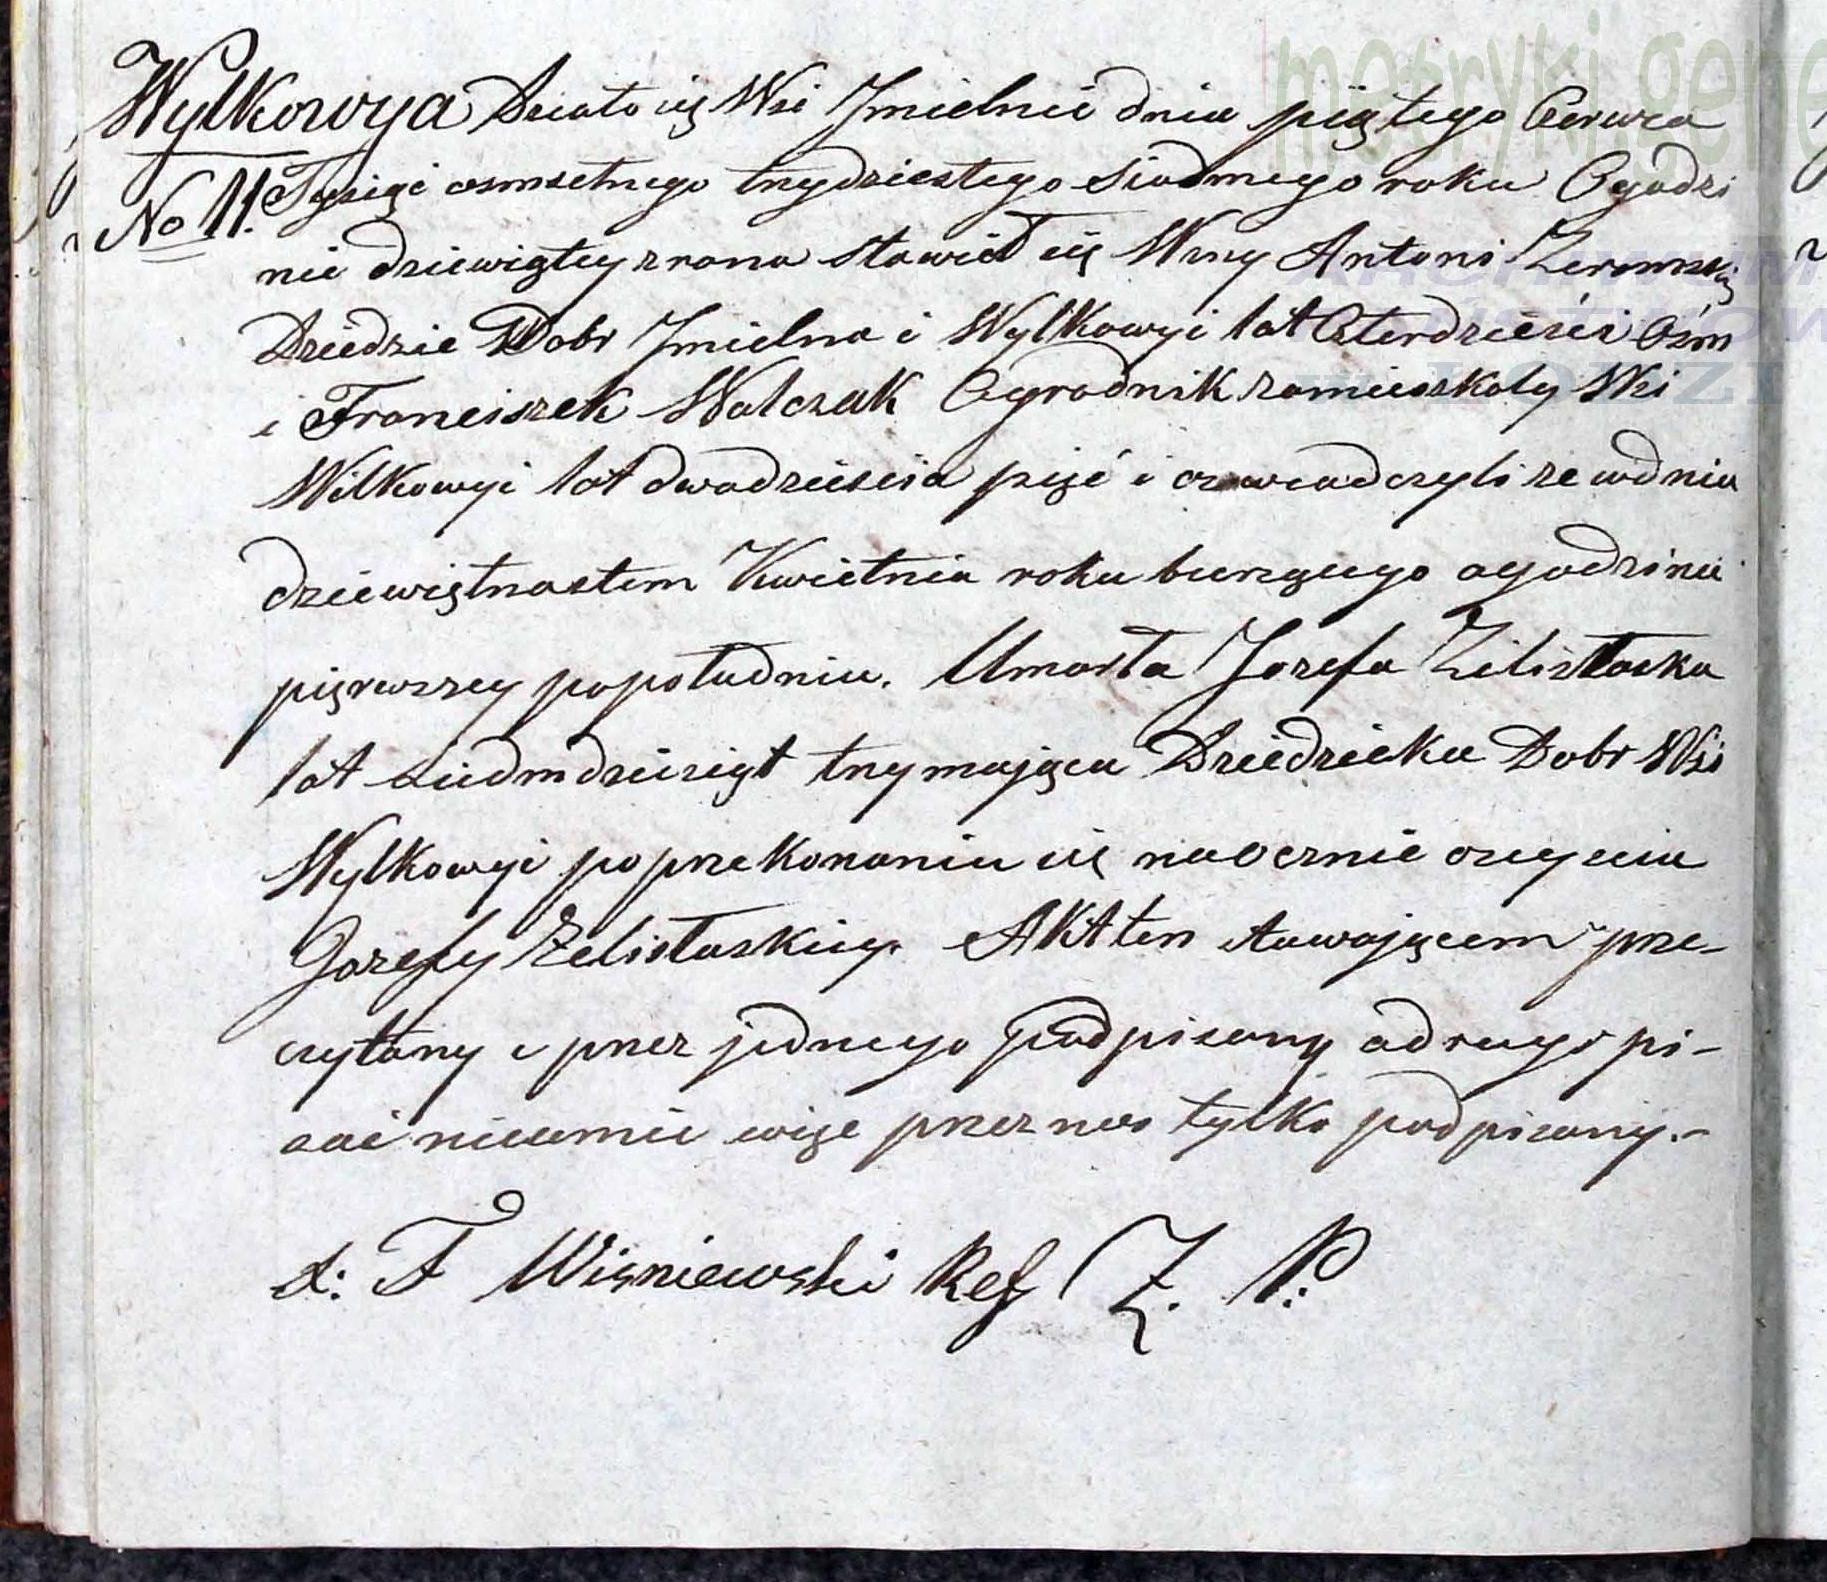 Wylkowya Działo się Wsi Jmielnie dnia piątego Czerwca
No 11. Tysiąc osmsetnego trzydziestego Siodmego roku O godzi
nie dziewiątey zrana stawieł się Wny Antoni Zeromski
Dziedzic Dobr Jmielna i Wylkowyi lat Czterdzieści Ośm
i Franciszek Walczak Ogrodnik zamieszkały Wsi
Wilkowyi lat dwadzieścia pięć i oswiadczyli ze wdniu
dziewiętnastem Kwietnia roku bieżącego ogodzinie
pięrwszey popołudniu. Umarła Jozefa Zelisławska
lat siedmdziesiąt trzymająca Dziedziczka Dobr Wsi
Wylkowyi poprzekonaniu się naocznie ozeyściu
Jozefy Zelisławskiey. AKt ten stawającem prze-
czytany i przez jednego podpisany adrugi pi-
sać nieumie więc przez nas tylko podpisany.-
X: F Wiśniewski Ref Z. P:
metryki gene
ARCHIWUM
PAŃSTWOW
W ŁODZI